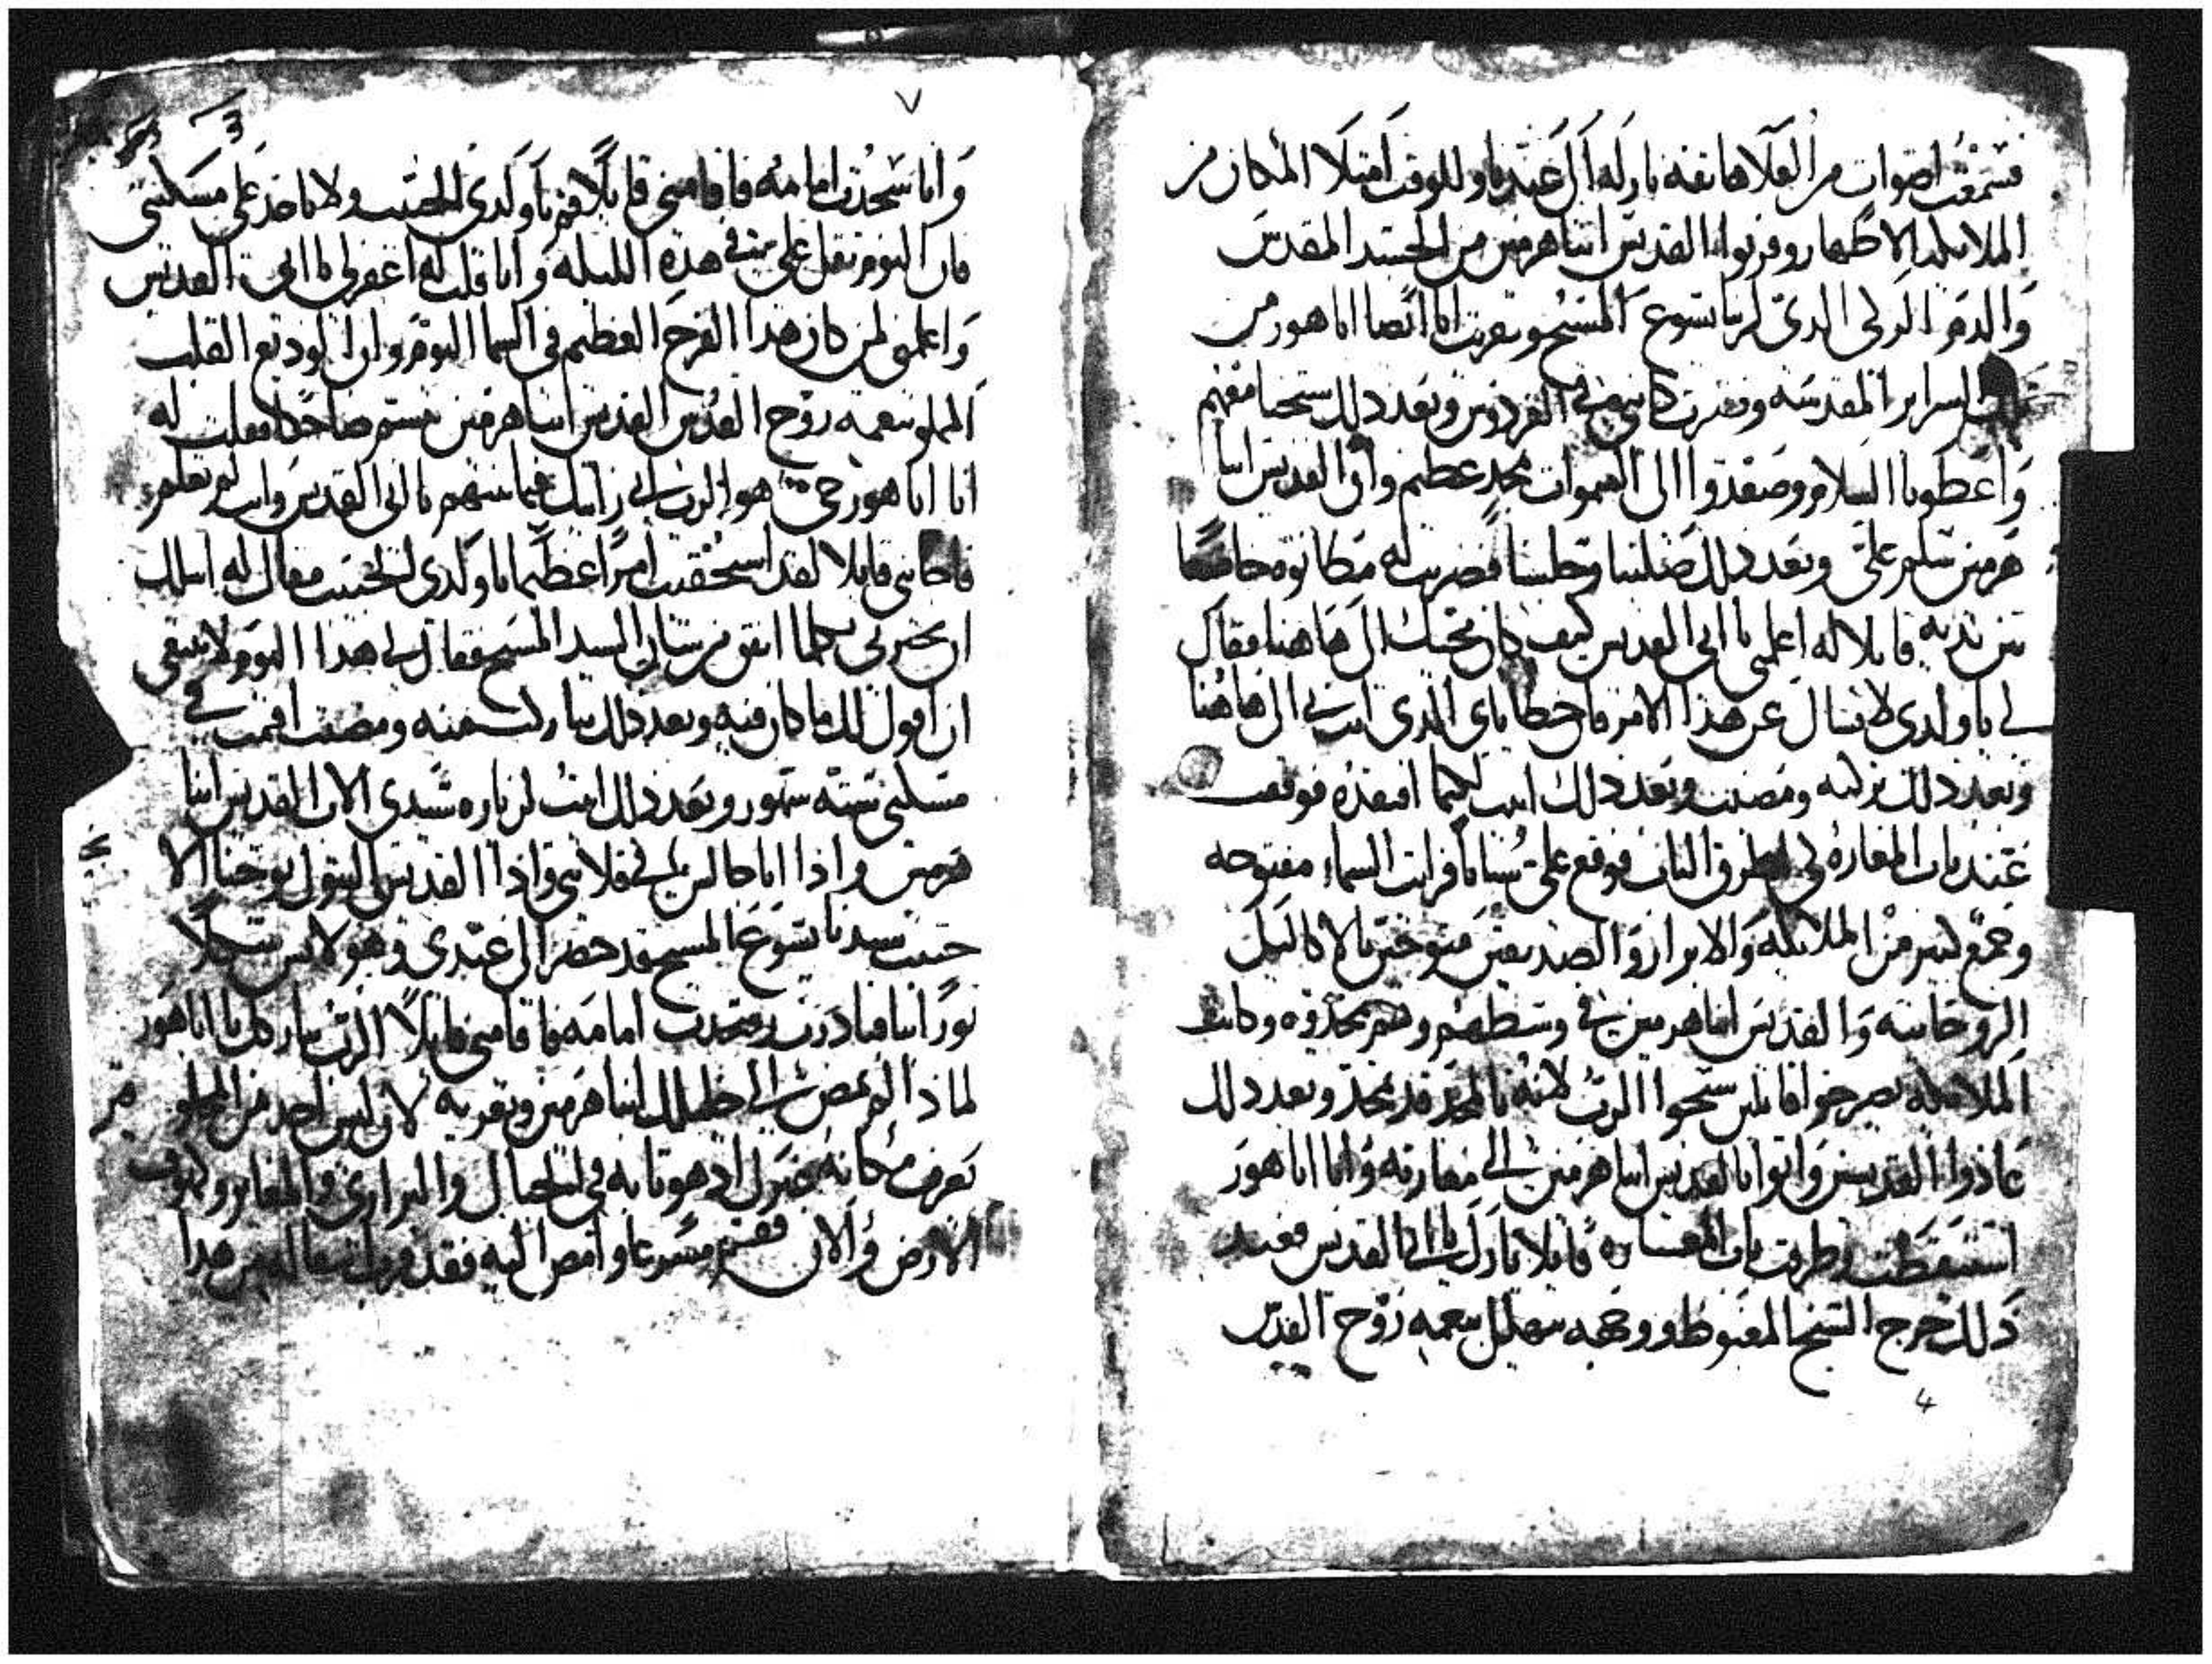 فسمعت اصوات من العلا هاتفه بارك الرب عبدنا وللوقت امتلا المكان من
الملايكه الاطهار وقربوا القديس انبا هرمين من الجسد المقدس
والدم الزكي الذي لربنا يسوع المسيح وتقربت انا ايضا اباهور من
السراير المقدسه وتعزيت كاني في الفردوس وبعد ذلك سبحنا معهم
واعطونا السلام وصعدوا الى السموات بمجد عظيم واتى القديس انبا
هرمين سلم علي وبعد ذلك صلينا وجلسنا فضربت له مطانوه خاضعا
بين يديه قايلا له اعلمني يا ابي القديس كيف كان مجيك الى هاهنا فقال
لي يا ولدي لا تسال عن هذا الامر فان خطاياي الذي اتت بي الى هاهنا
وبعد ذلك تركته ومضيت وبعد ذلك اتيت لكيما افتقده فوقفت
عند باب المغاره لكي اطرق الباب فوقع علي سبات فرايت السماء مفتوحه
وجمع كبير من الملايكه والابرار والصديقين متوجين بالاكاليل
الروحانيه والقديس انبا هرمين في وسطهم وهم يمجدوه وكانت
الملايكه يصرخوا قايلين سبحوا الرب لانه بالمجد قد تمجد وبعد ذلك
عادوا القديسين واتوا بالقديس انبا هرمين الى مغارته وانا اباهور
استيقظت وطرقت باب المغاره قايلا بارك يا ابي القديس فعند
ذلك خرج الشيخ المغبوط ووجهه يتهلل بنعمه روح القدس
4
٧
وانا سجدت امامه فاقامني قايلا قم يا ولدي الحبيب ولا تاخذ على مسكنتي
فان النوم ثقل علي في هذه الليله وانا قلت له اغفر لي يا ابي القديس
واعلمني لمن كان هذا الفرح العظيم في السما اليوم وان الوديع القلب
المملو بنعمه روح القدس القديس انبا هرمين تبسم ضاحكا فقلت له
انا اباهور حي هو الرب اني رايتك فيما بينهم يا ابي القديس وانت لم تعلم
فاجابني قايلا لقد استحقيت امرا عظيما يا ولدي الحبيب فقال له اسلك
ان تخبرني بكلما اتفق من شان السيد المسيح فقال لي هذا اليوم لا ينبغي
ان اقول لك ما كان فيه وبعد ذلك تباركت منه ومضيت اقمت في
مسكني سته شهور وبعد ذلك اتيت لزياره سيدي الاب القديس انبا
هرمين واذا انا جالس في قلايتي واذا القديس البتول يوحنا الا
حبيب سيدنا يسوع المسيح قد حضر الى عندي وهو لابس حللا
نورانيا فبادرت وسجدت امامه فاقامني قايلا الرب يباركك يا اباهور
لماذا لم تمض الى خليلك انبا هرمين وتعزيه لان ليس احد من
يعرف مكانه غيرك اذ هو تايه في الجبال والبراري والمغاير وكهوف
الارض والان فقم مسرعا وامض اليه فقد من هذا